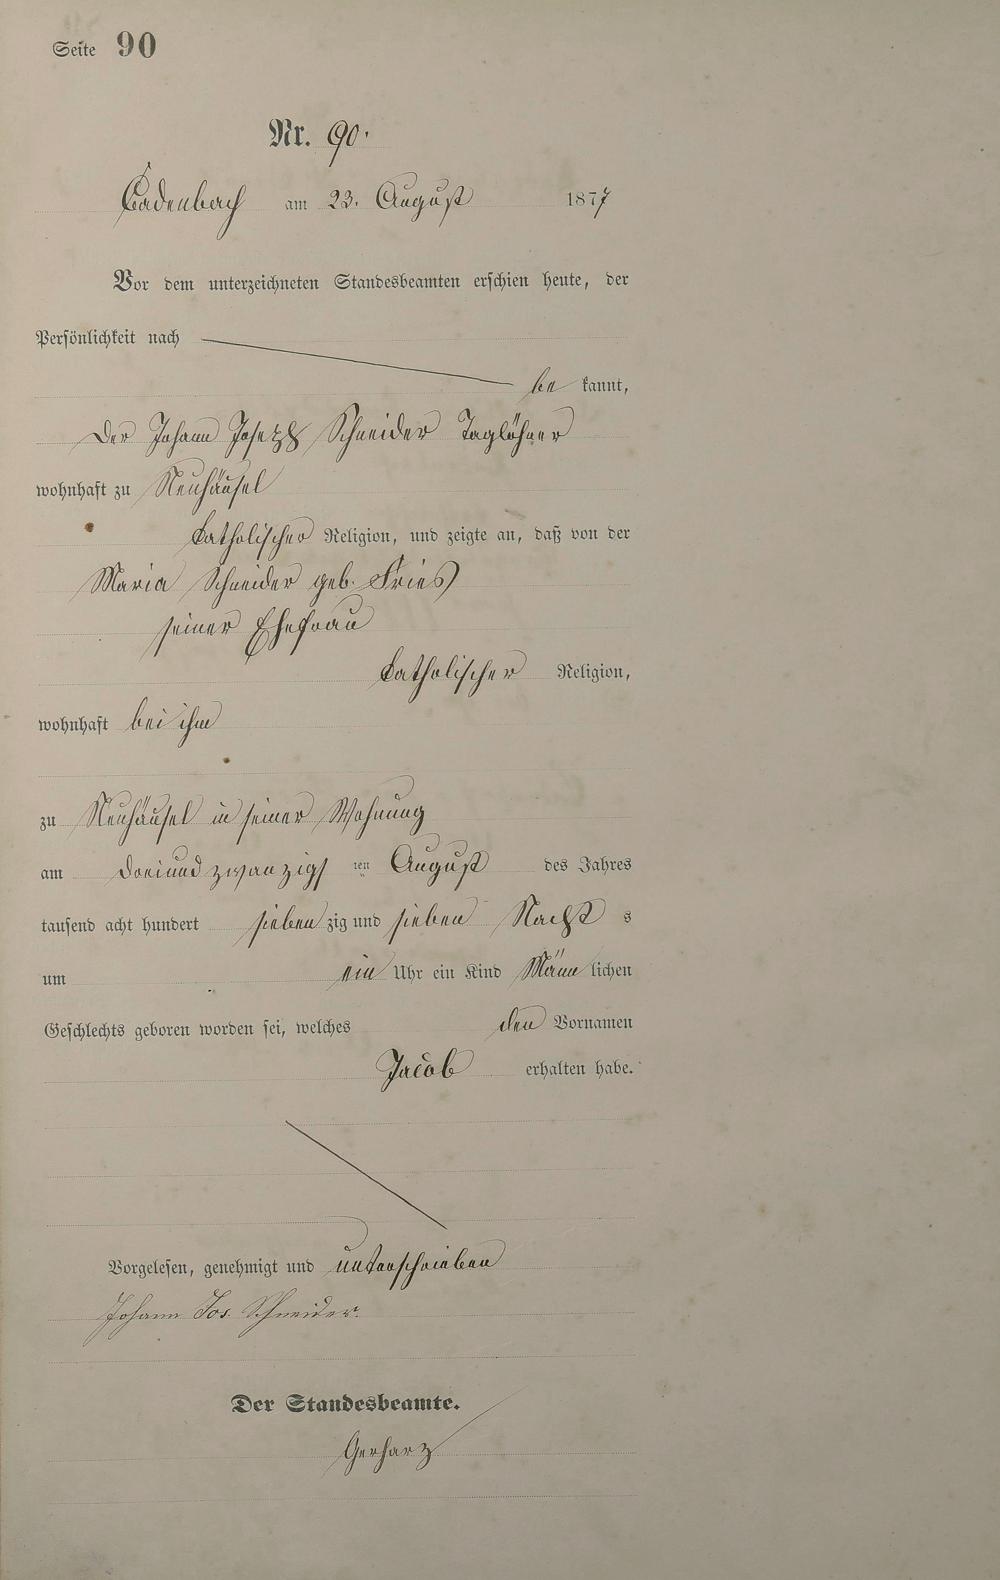 Seite 90
Nr. 90.
Cadenbach am 23. August 1877
Vor dem unterzeichneten Standesbeamten erschien heute, der
Persönlichkeit nach
be kannt,
der Johann Joseph Schneider Taglöhner
wohnhaft zu Neuhäusel
katholischer Religion, und zeigte an, daß von der
Maria Schneider geb. Fries
seiner Ehefrau
katholischer Religion,
wohnhaft bei ihm
zu Neuhäusel in seiner Wohnung
am dreiundzwanzigs ten August des Jahres
tausend acht hundert sieben zig und sieben Nacht s
um ein Uhr ein Kind Männ lichen
Geschlechts geboren worden sei, welches den Vornamen
Jacob erhalten habe.
Vorgelesen, genehmigt und unterschrieben
Johann Jos. Schneider.
Der Standesbeamte.
Gerharz